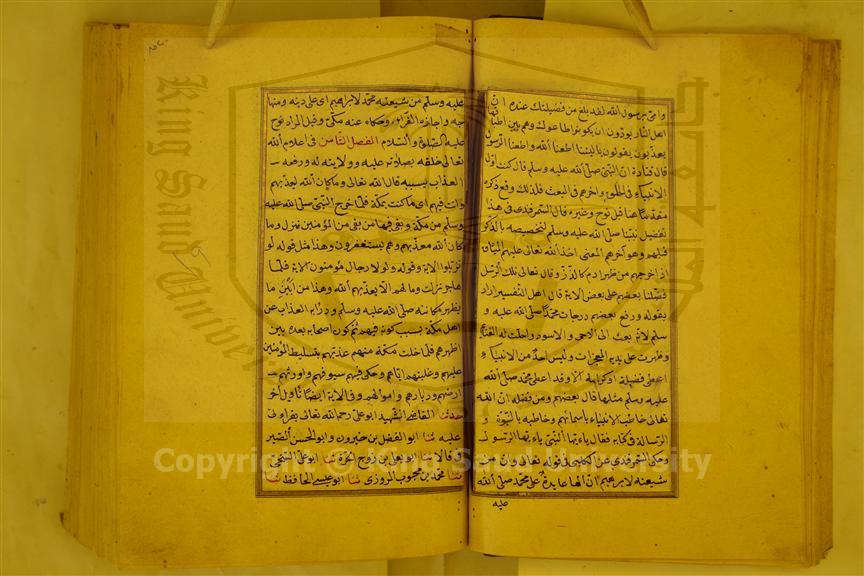 وامي يا رسول الله لقد بلغ من فضيلتك عنده ان
اهل النار يودون ان يكونوا اطاعوك وهم بين اطباقها
يعذبون يقولون يا ليتنا اطعنا الله واطعنا الرسول
قال قتادة ان النبي صلى الله عليه وسلم قال كنت اول
الانبياء في الخلق واخرهم في البعث فلذلك وقع ذكره
مقدما هنا قبل نوح وغيره قال السمرقندي في هذا
تفضيل نبينا صلى الله عليه وسلم لتخصيصه بالذكر
قبلهم وهو آخرهم المعنى اخذ الله تعالى عليهم الميثاق
اذ اخرجهم من ظهر ادم كالذر وقال تعالى تلك الرسل
فضلنا بعضهم على بعض الاية قال اهل التفسير اراد
بقوله ورفع بعضهم درجات محمدا صلى الله عليه و
سلم لانه بعث الى الاحمر والاسود واحلت له الغنائم
وظهرت على يديه المعجزات وليس احد من الانبياء
اعطى فضيلة او كرامة الا وقد اعطى محمد صلى الله
عليه وسلم مثلها قال بعضهم ومن فضله ان الله
تعالى خاطب الانبياء باسمائهم وخاطبه بالنبوة و
الرسالة في كتابه فقال يا ءيها النبي يا ءيها الرسول
وحكى السمرقندي عن الكلبي في قوله تعالى وان من
شيعته لابرهيم ان الهاء عايدة على محمد صلى الله
عليه
عليه وسلم من شيعته محمد لابراهيم اى على دينه ومنها
جه واجازه الفراء وحكاه عنه مكى وقيل المراد نوح
عليه الصلوة والسلام الفصل الثامن فى اعلام الله
تعالى خلقه بصلاته عليه وولايته له ورفعه
العذاب بسببه قال الله تعالى وما كان الله ليعذبهم
وانت فيهم اى ما كنت بمكة فلما خرج النبي صلى الله عليه
وسلم من مكة وبقى فيها من بقى من المؤمنين نزل وما
كان الله معذبهم وهم يستغفرون وهذا مثل قوله لو
تزيلوا الاية وقوله ولولا رجال مؤمنون الاية فلما
هاجر نزلت وما لهم الا يعذبهم الله وهذا من ابين ما
يظهر مكانته صلى الله عليه وسلم ودرابه العذاب عن
اهل مكة بسبب كونه فيهم ثم كون اصحابه بعده بين
اظهرهم فلما خلت مكة منهم عذبهم بتسليط المؤمنين
عليهم وغلبتهم اياهم وحكم فيهم سيوفهم واورثهم
ارضهم وديارهم واموالهم وفى الاية ايضا تأويل آخر
حدثنا القاضى الشهيد ابو على رحمه الله تعالى بقراءتى
عليه ثنا ابو الفضل بن خيرون وابو الحسن الصير
فى قالا ثنا ابو يعلى بن زوج الحرة ثنا ابو على السنجى
ثنا محمد بن محبوب المروزى ثنا ابو عيسى الحافظ ثنا
King Saud University
جامعة الملك
Copyright © King Saud University